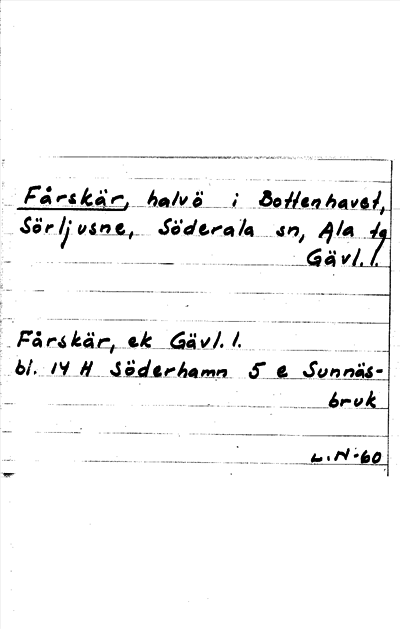 Fårskär, halvö i Bottenhavet,
Sörljusne, Söderala sn, Ala tg
Gävl. l.
Fårskär, ek Gävl. l.
bl. 14 H Söderhamn 5 e Sunnäs-
bruk
L.N-60